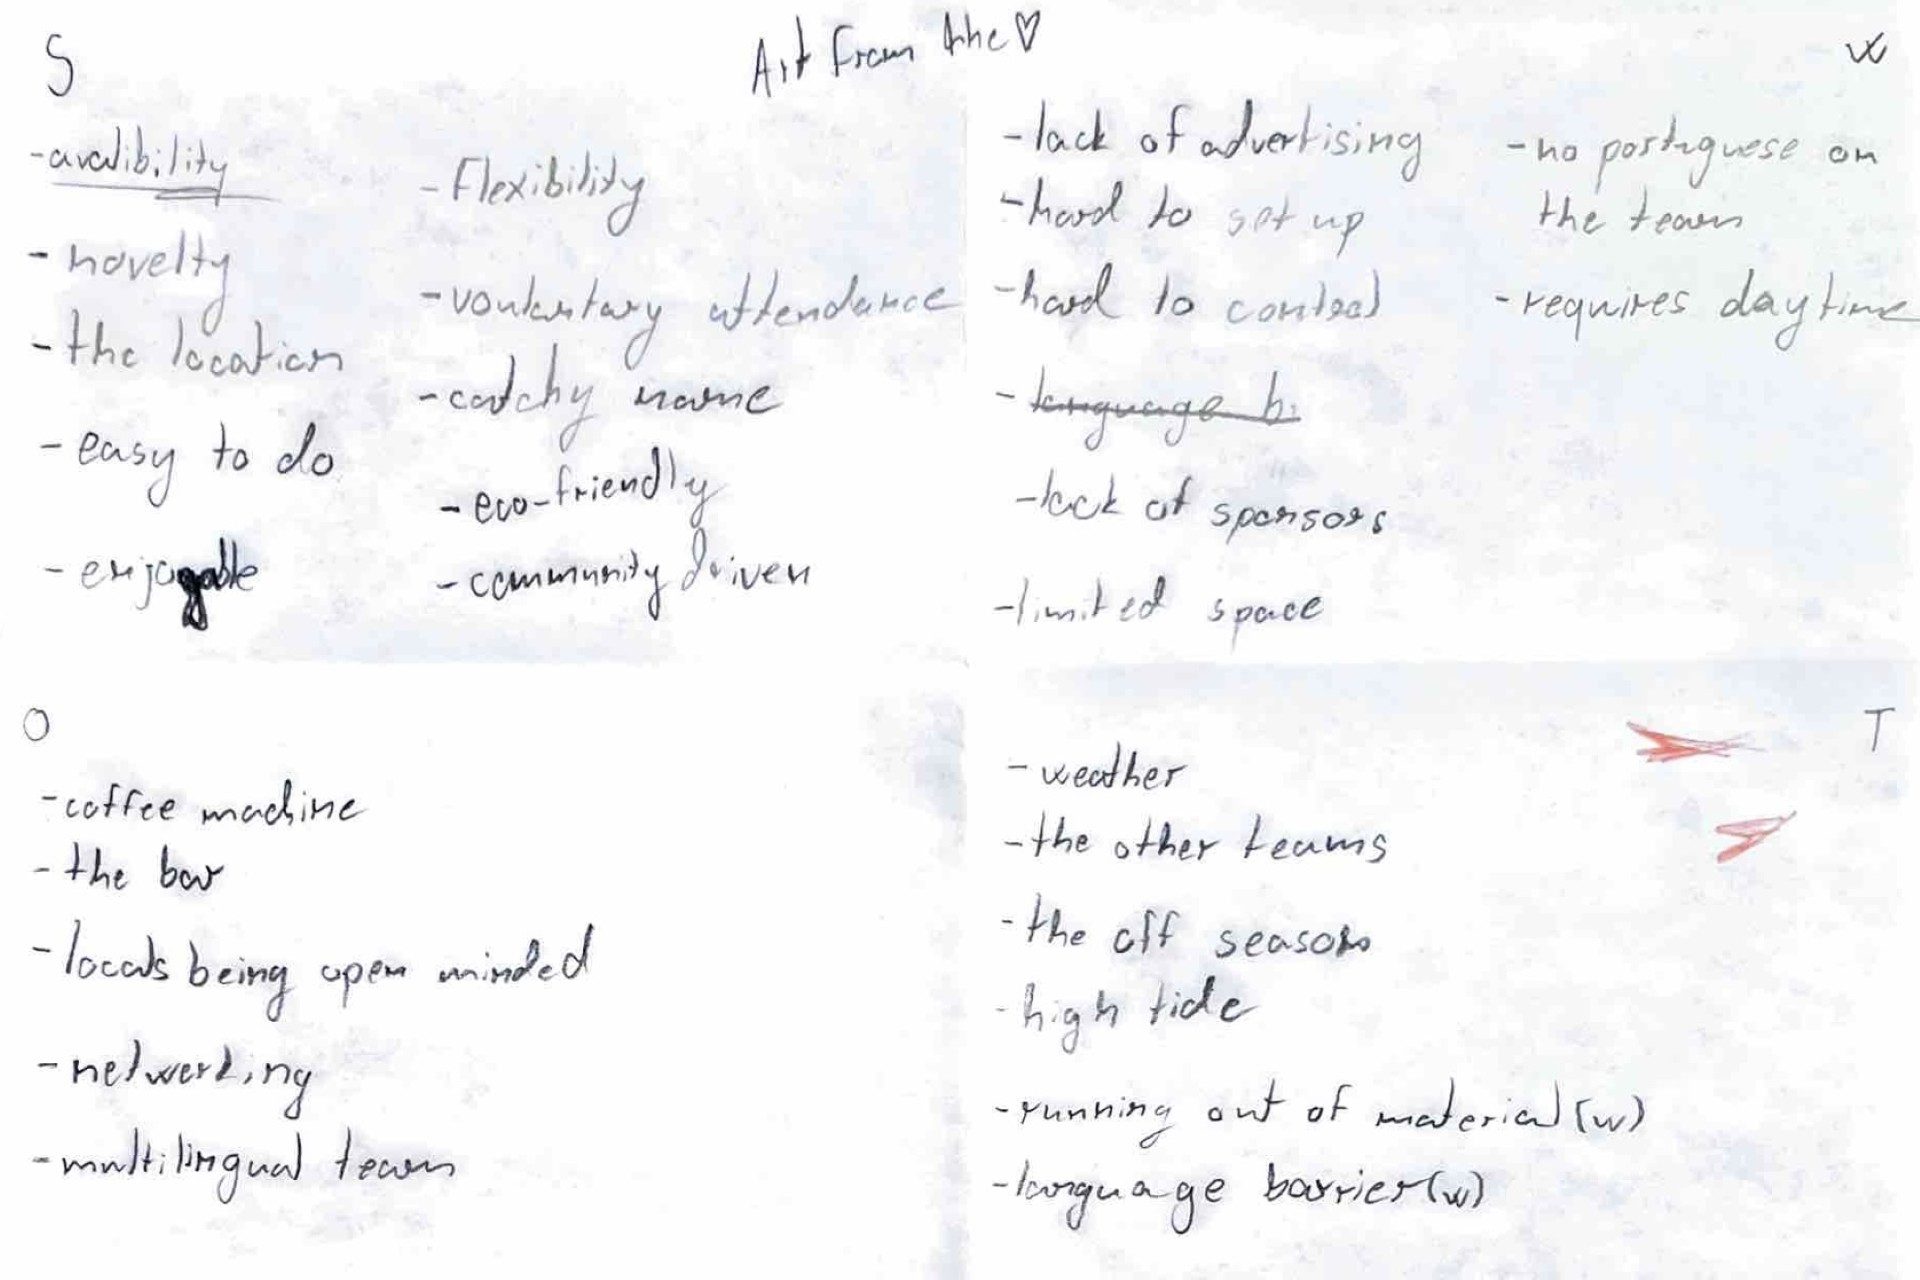 Art From the ♡
S
-avalibility
- novelty
- the location
- easy to do
- enjoyable
- Flexibility
- vountartary attendance
- catchy name
- eco-friendly
- community driven
W
- lack of advertising
- hard to set up
- hard to control
- language b.
- lack of sponsors
- limited space
- no portuguese on
the team
- requires daytime
O
- coffee machine
- the bar
- locals being open minded
- networking
- multilingual team
T
- weather
- the other teams
- the off season
- high tide
- running out of material (w)
- language barrier (w)